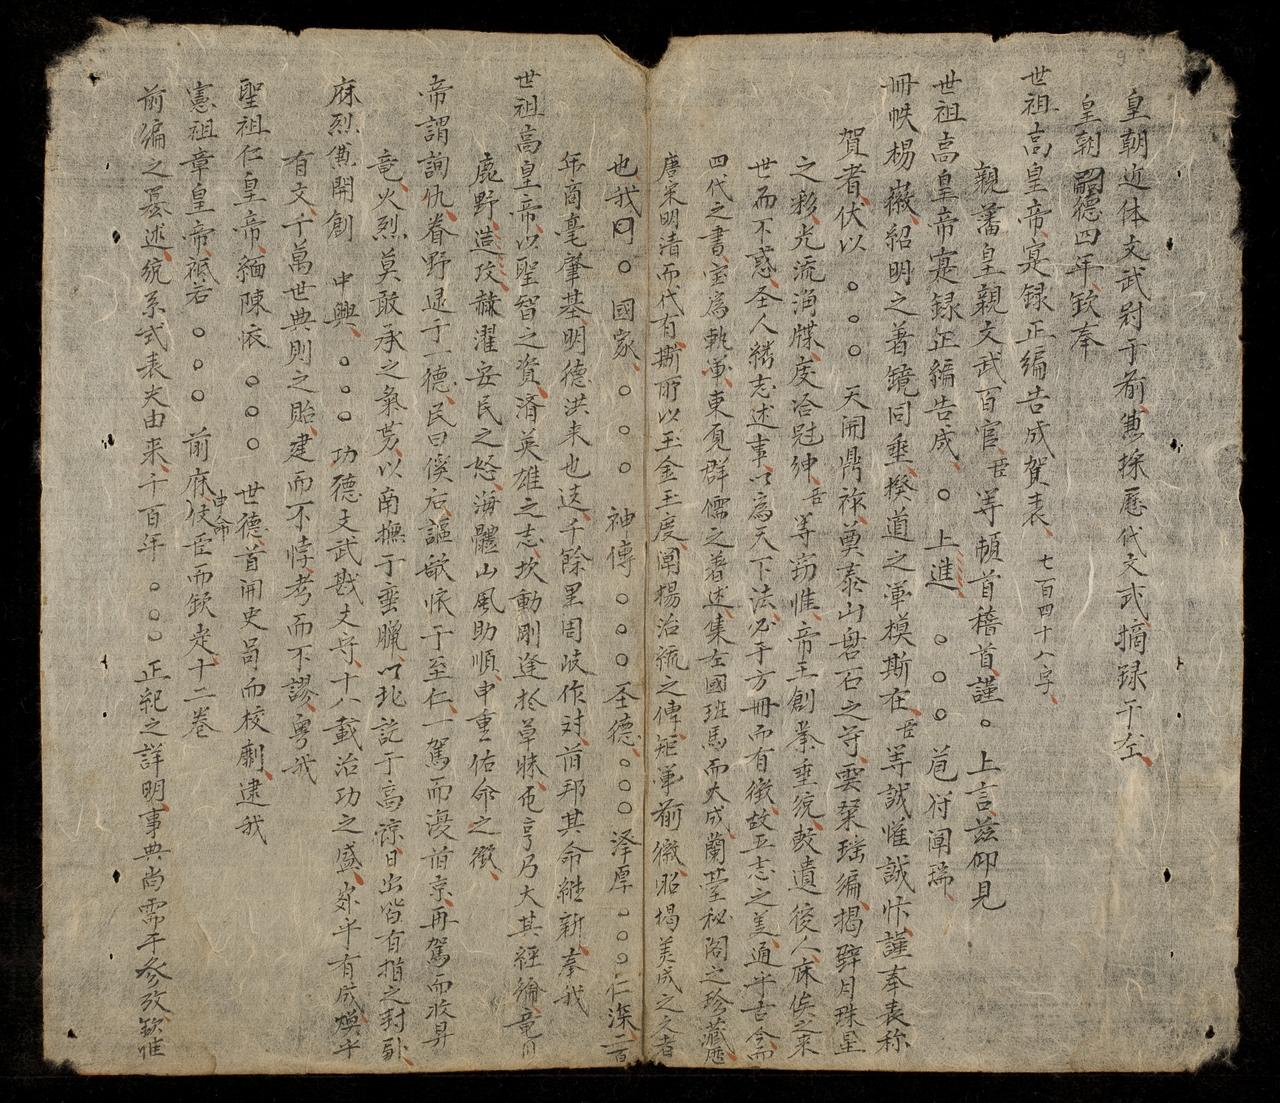 皇朝近体文武對于前兼採歷代文武摘録于左
皇朝嗣德四年欽奉
世祖高皇帝寔録正編告成賀表 七百四十八字
親藩皇親文武百官臣等頓首稽首謹○上言茲仰見
世祖高皇帝寔録正編告成○上進○○○苞符闡瑞
冊帙楊徽紹明之著鏡同垂揆道之軍模斯在臣等誠惟誠忭謹奉表称
賀者伏以○○○天開鼎祚奠泰山磐石之守雲琹瑶編揭璧月珠星
之彩光流海牒度洽冠紳臣等窃惟帝王創業垂統敷遺後人床俟之來
世而不惑圣人繕志述事以為天下法必乎方冊而有徵故五志之羙通乎古今而
四代之書宝為軌軍東頁群儒之著述集左國班馬而大成蘭臺秘閣之珍藏歷
唐宋明清而代有斯所以玉金王度闡楊治統之傳矩軍前徽昭揭美成之文者
也我囙○國家○○○神傳○○○圣德○○○泽厚○○○仁深二百
年商亳肇基明德洪来也迖千餘里周岐作对旹邦其命維新奉我
世祖高皇帝以聖智之資済英雄之志坎動剛逢於草昧屯亨乃大其經綸竜川
鹿野造攻赫濯安民之怒海體山風助順申重佑命之徵
帝謂詢仇眷野退于一德民曰傒后謳歌恢于至仁一駕而漫旹京再駕而收昇
竜火烈莫敢承之枲芳以南撫于蛮臘以北訖于高諒日出皆有指之封副
庥烈兼開創 中興○○○功德文武戡丈守十八載治功之盛歲斗有成煥乎
有文千萬世典則之貽建而不悖考而不謬粤我
聖祖仁皇帝緬陳依○○○世德首開史局而校劘逮我
憲祖章皇帝祇若○○○前庥申命使臣而欽定十二巻
前編之纂述統系式表夫由来千百年○○○正紀之詳明事典尚需乎參攷欽惟